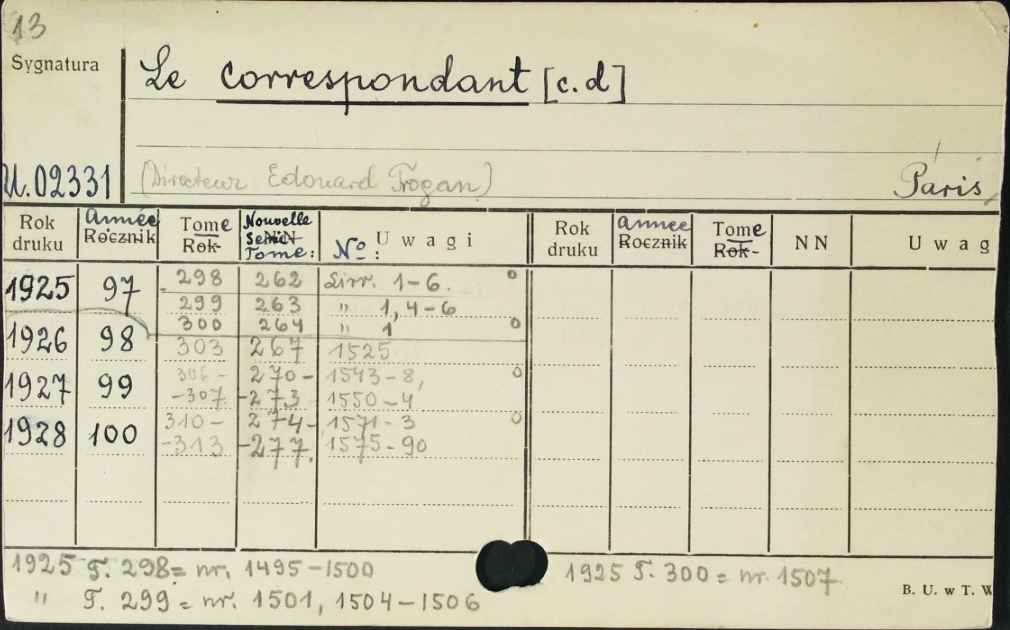 13
Sygnatura
Le correspondant [c.d]
U.02331
(Directeur Edouard Trogan)
Paris
Rok druku Année Rocznik Tome Rok Nouvelle Serie NN Tome: No: Uwagi Rok druku Année Rocznik Tome Rok NN Uwag
1925 97 298 262 Livr. 1-6. o
299 263 " 1, 4-6
300 264 " 1 o
1926 98 303 267 1525
1927 99 306- 270- 1543-8, o
-307 -273 1550-4
1928 100 310- 274- 1571-3 o
-313 -277. 1575-90
1925 T. 298 = nr. 1495-1500
" T. 299 = nr. 1501, 1504-1506
1925 T. 300 = nr. 1507
B. U. w T. W